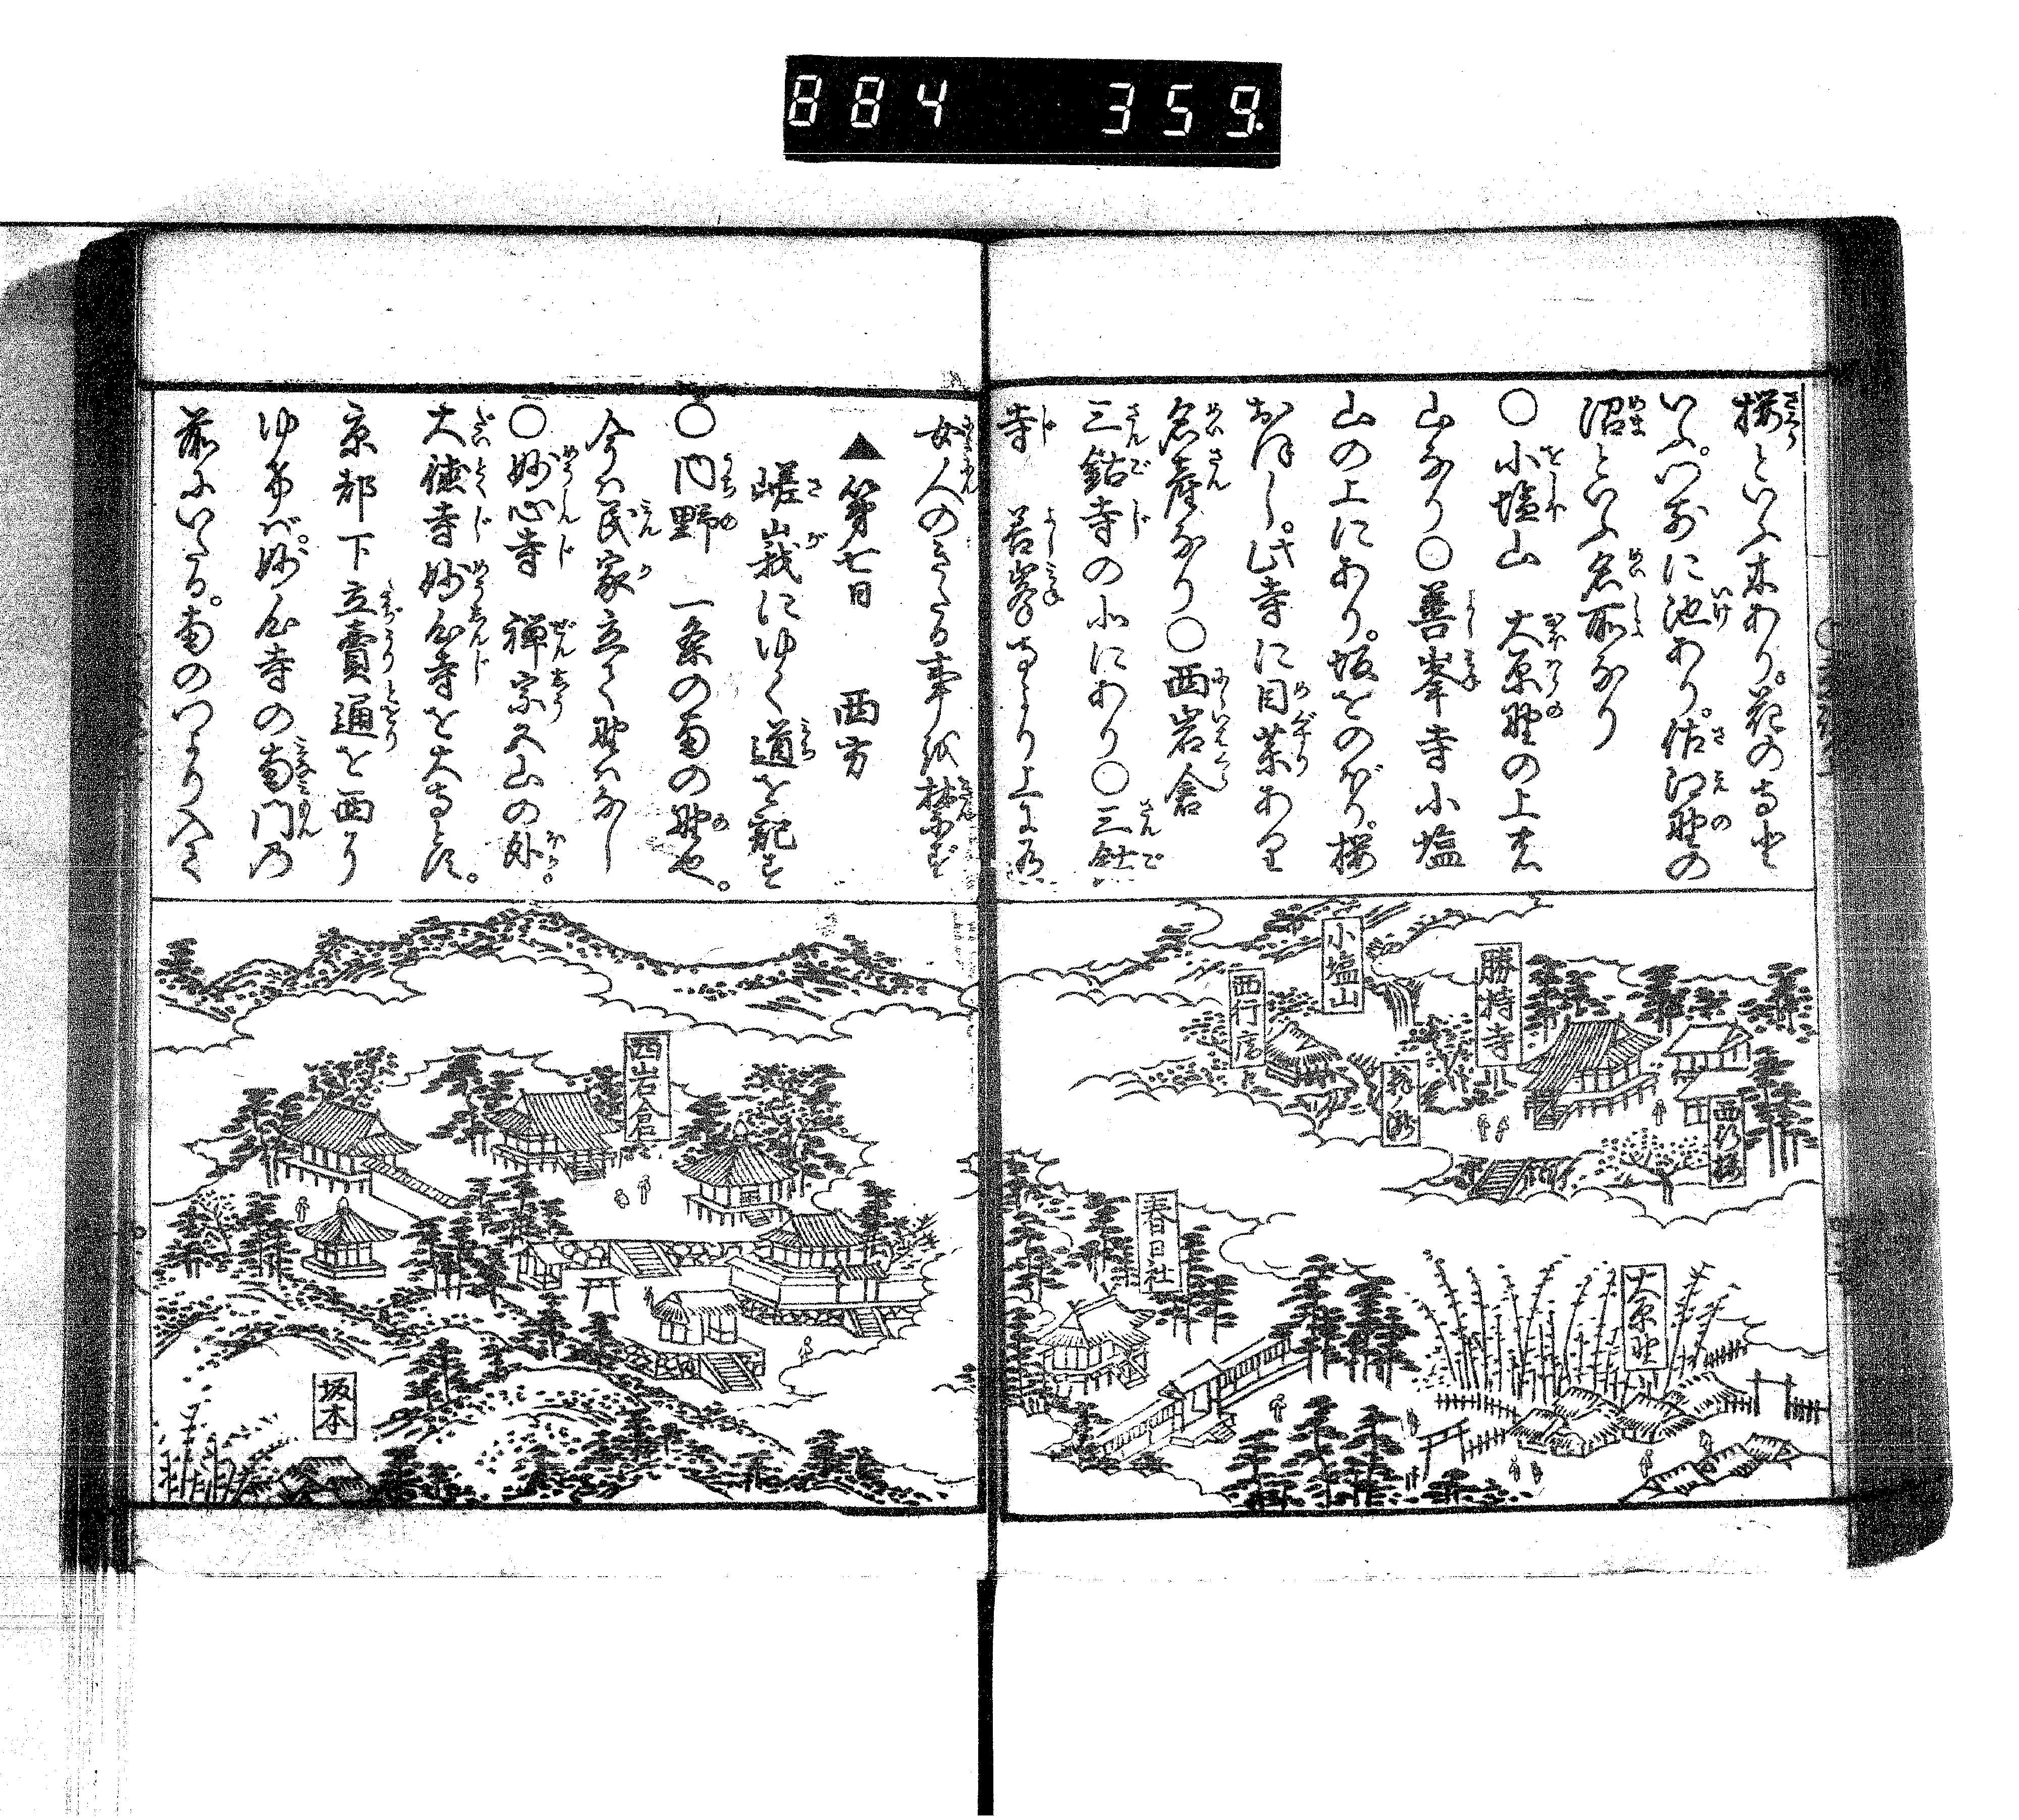 884 359.
桜といふ木あり。花の寺と
いふ。つねに池あり。佐江野の
沼といふ名所なり
○小塩山 大原野の上す
山なり○善峯寺 小塩
山の上にあり。坂をのぼり。桜
おほし。此寺に目薬あり
名産なり○西岩倉
三鈷寺の北にあり○三鈷
寺 善峯寺より上に有
女人のきたる事を禁ず
▲第七日 西方
嵯峨にゆく道を記す
○内野 一条の南の野也。
今は民家立て野はなし
○妙心寺 禅宗五山の外。
大徳寺妙心寺を大寺とす。
京都下立賣通を西へ
ゆけば。妙心寺の南門の
前にいたる。南の門より入て
小塩山
勝持寺
西行庵
西行桜
春日社
大原野
西岩倉
坂本